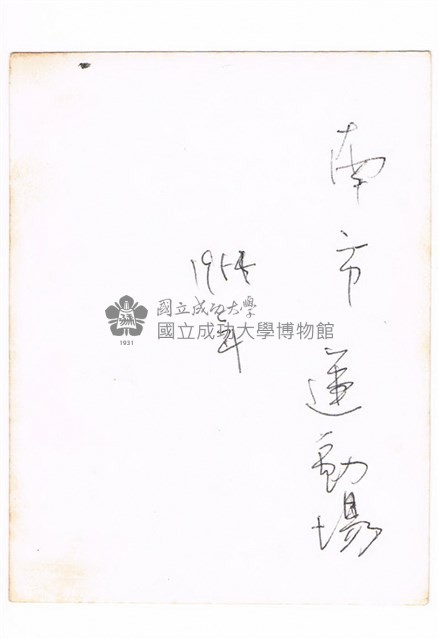 南市運動場
1954年
國立成功大學
國立成功大學博物館
1931